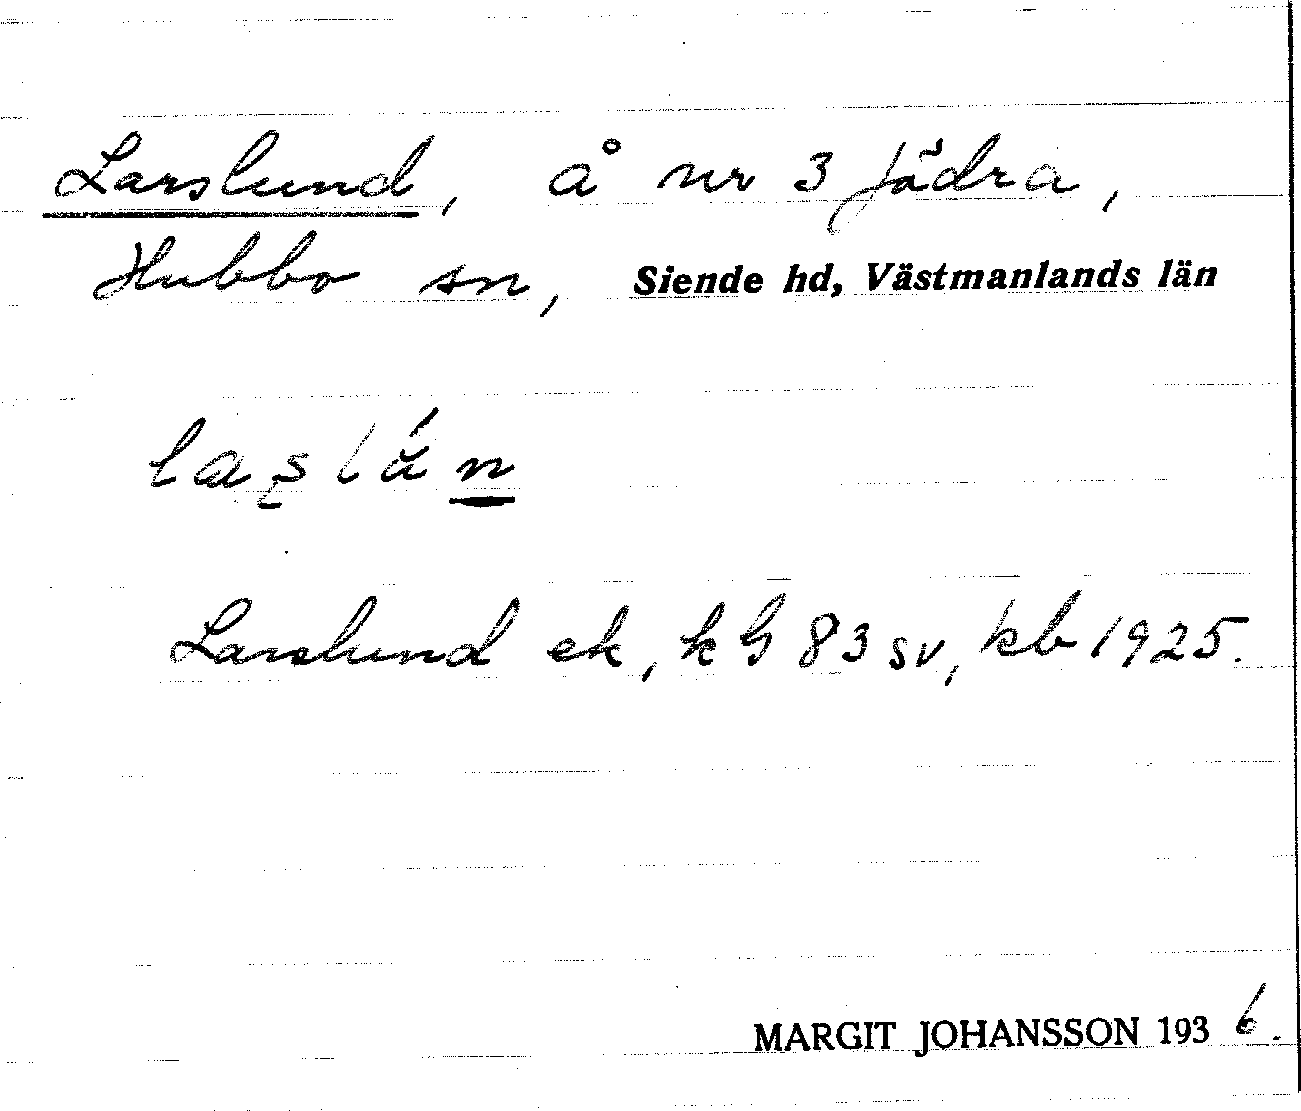 Larslund, å nr 3 Jädra,
Hubbo sn, Siende hd, Västmanlands län
Larslund ek, k G 83 sv, kb 1925.
MARGIT JOHANSSON 1936.